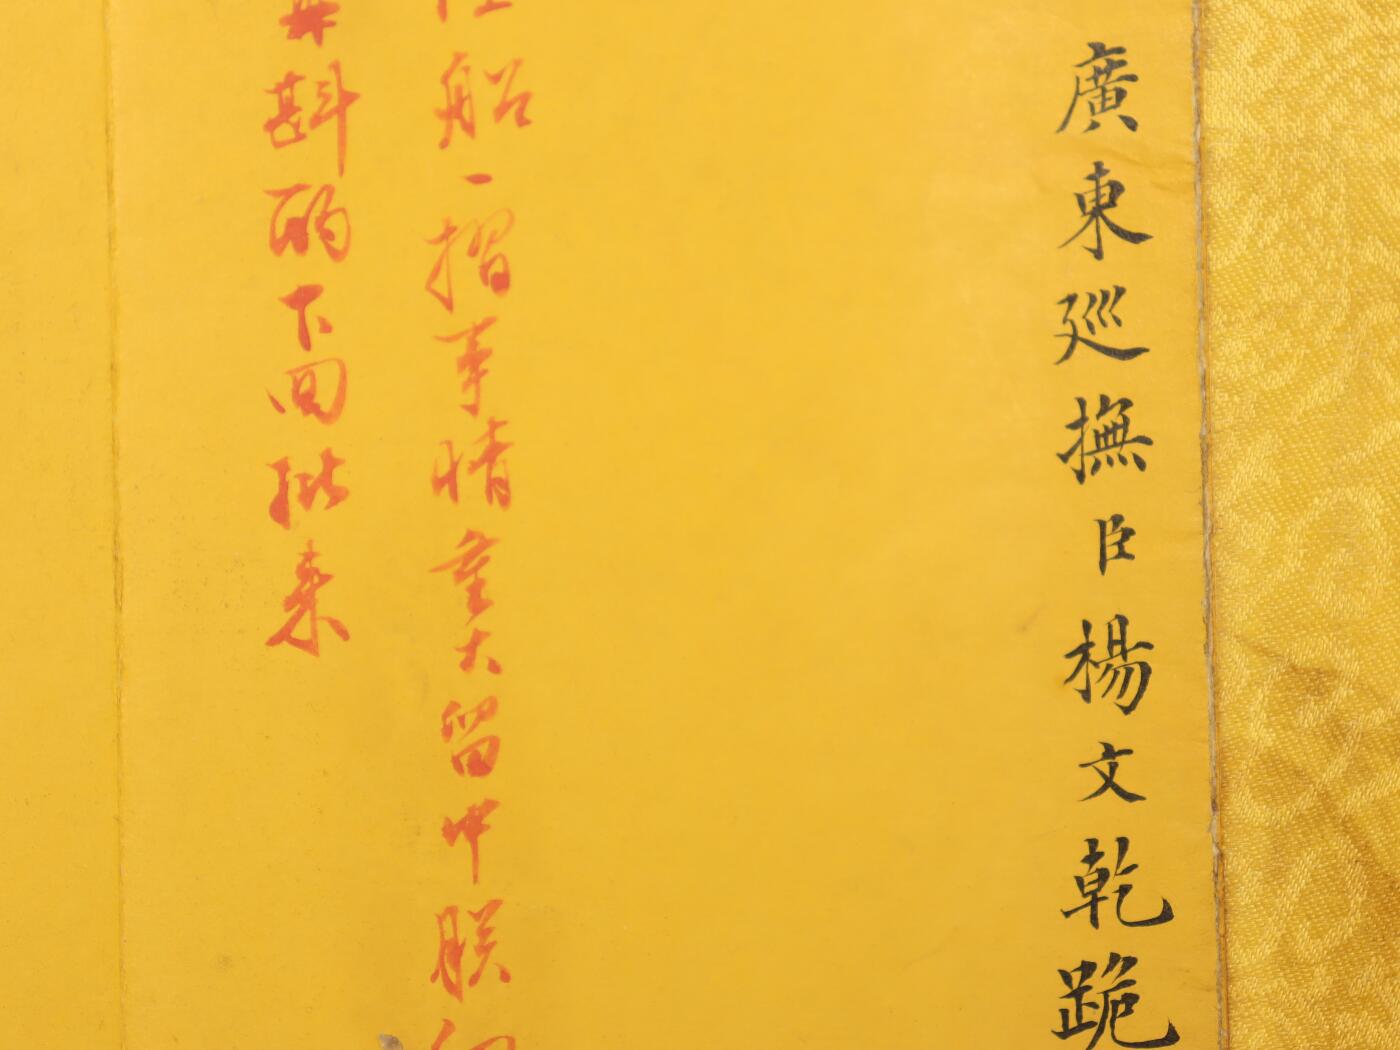 廣東廵撫臣楊文乾跪
船一摺事情重大留中朕細
斟酌下回批来